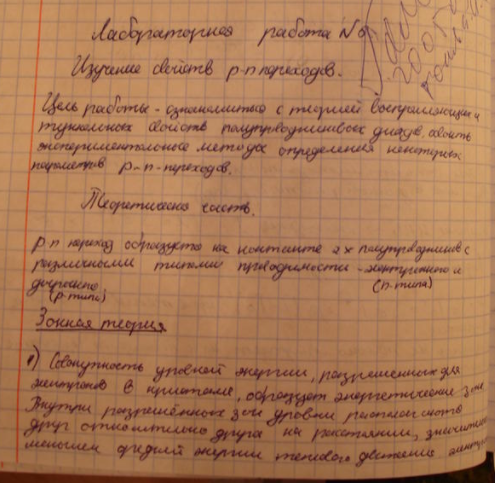 Лабораторная работа №
Изучение свойств p-n переходов.
Цель работы - ознакомиться с теорией выпрямляющих и
туннельных свойств полупроводниковых диодов, освоить
экспериментальные методы определения некоторых
параметров p-n-переходов.
Теоретическая часть.
p-n переход образуется на контакте 2х полупроводников с
различными типами проводимости - электронного и
дырочного (n-типа)
(p-типа)
Зонная теория
1) Совокупность уровней энергии, разрешенных для
электронов в кристалле, образует энергетические зоны.
Внутри разрешённых зон уровни располагаются
друг относительно друга на расстоянии, значительно
меньшем средней энергии теплового движения